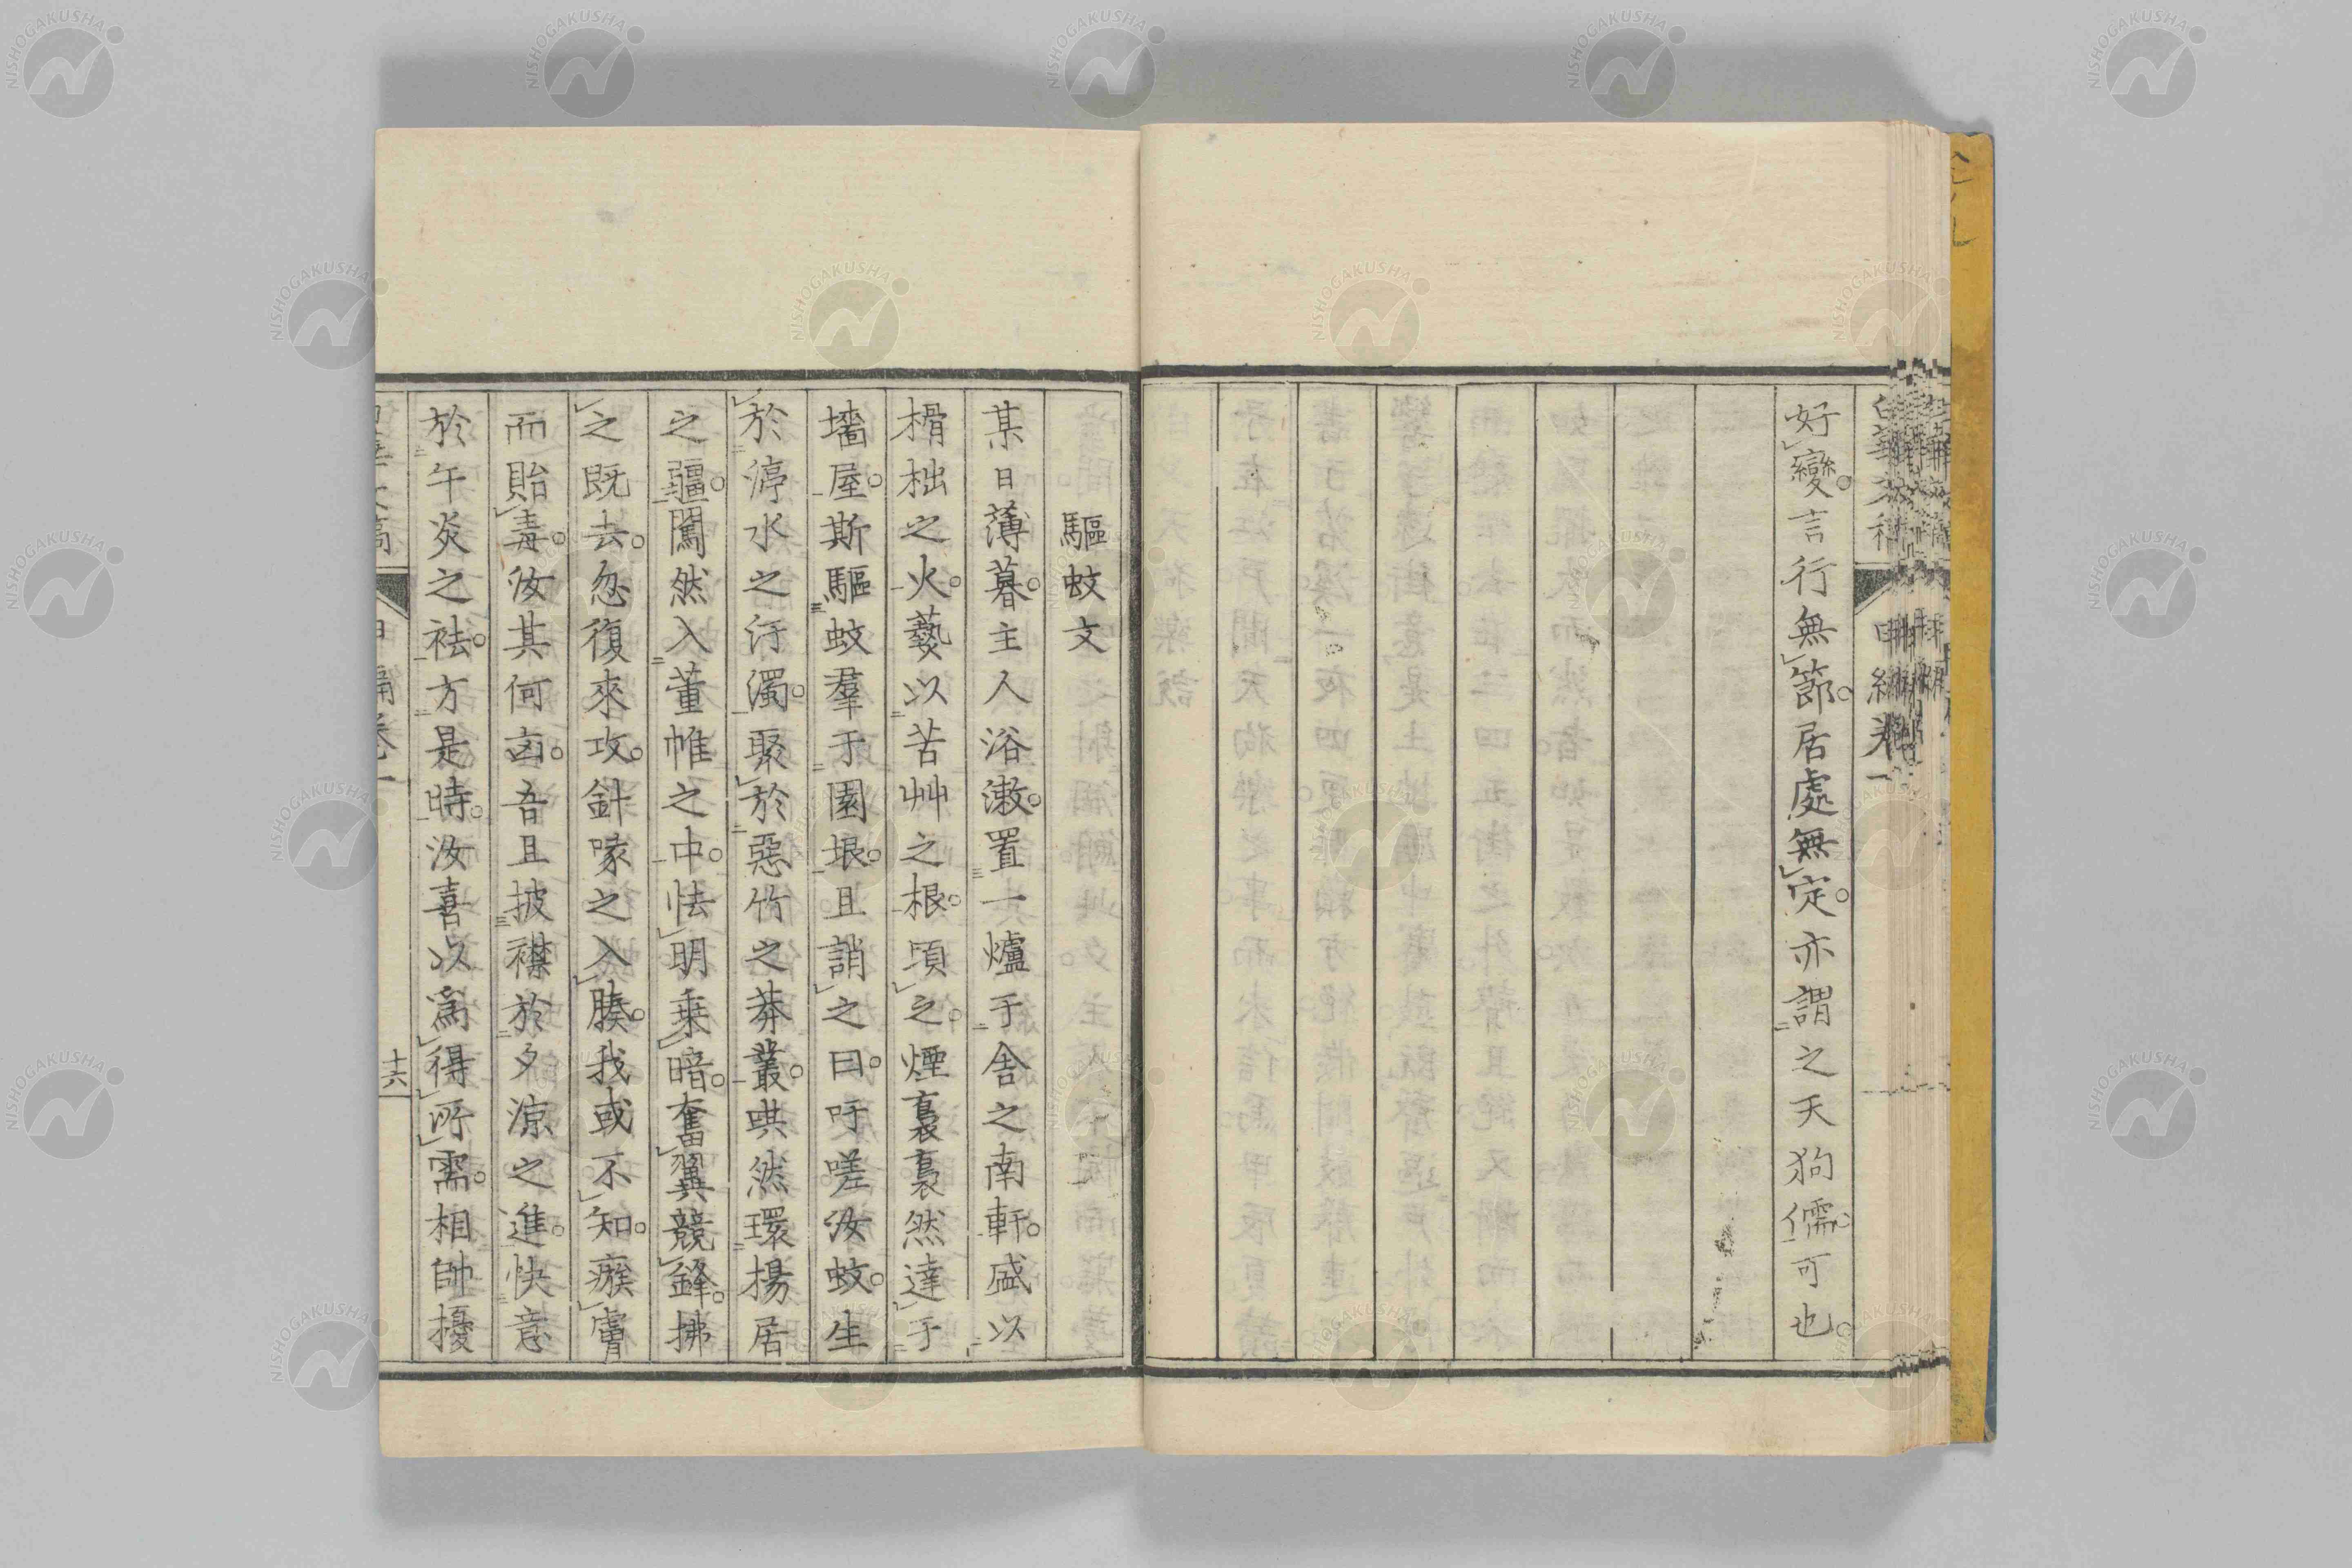 好變言行無節居處無定亦謂之天狗儒可也
驅蚊文
某日薄暮主人浴漱置一爐于舍之南軒盛以
榾柮之火爇以苦艸之根頃之煙裊裊然達于
墻屋斯驅蚊羣于園垠且誚之曰吁嗟汝蚊生
於渟水之汙濁聚於惡竹之莽叢哄然環揚居
之疆闖然入董帷之中怯明乘暗奮翼競鋒拂
之既去忽復來攻針喙之入腠我或不知瘊膚
而貽毒汝其何卤吾且披襟於夕涼之進快意
於午炎之祛方是時汝喜以爲得所需相帥擾
甲編卷一
十六
NISHOGAKUSHA